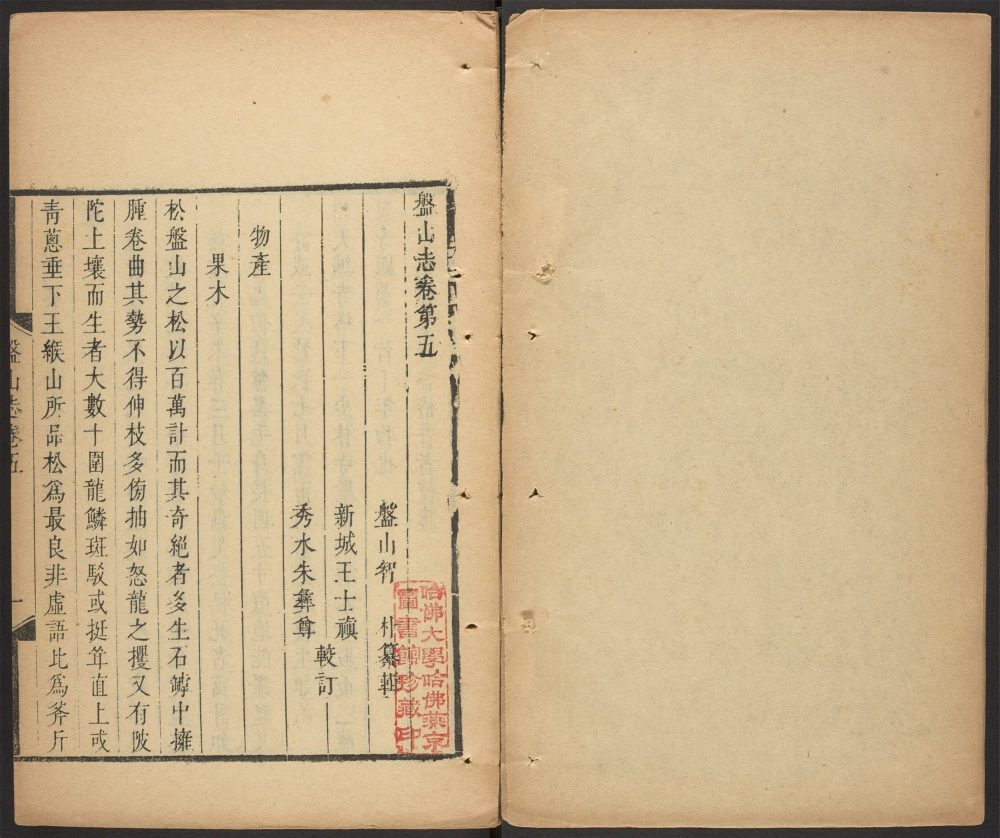 盤山志卷第五
盤山智朴纂輯
新城王士禛
秀水朱彝尊
較訂
物產
果木
松盤山之松以百萬計而其奇絕者多生石罅中擁
腫卷曲其勢不得伸枝多傍抽如怒龍之攫又有陂
陀土壤而生者大數十圍龍鱗斑駁或挺耸直上或
青蔥垂下王緱山所品松為最良非虛語比為斧斤
盤山志卷五
一
哈佛大學哈佛燕京
圖書館珍藏印